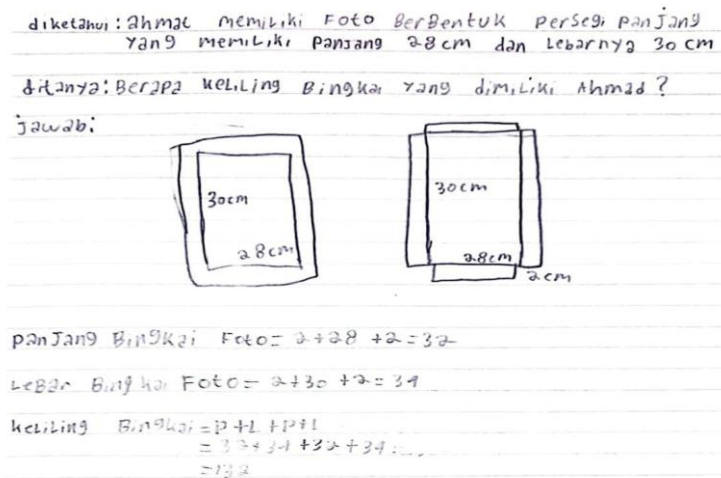 diketahui: ahmat memiliki Foto BerBentuk persegi panjang
yang memiliki panjang 28 cm dan Lebarnya 30 cm
ditanya: Berapa keliling Bingkai yang dimiliki Ahmad?
jawab:
30cm
28cm
30cm
28cm
2cm
panjang Bingkai Foto = 2+28+2=32
LeBar Bingkai Foto = 2+30+2=34
keliling Bingkai = P+L+P+L
= 32+34+32+34
=132